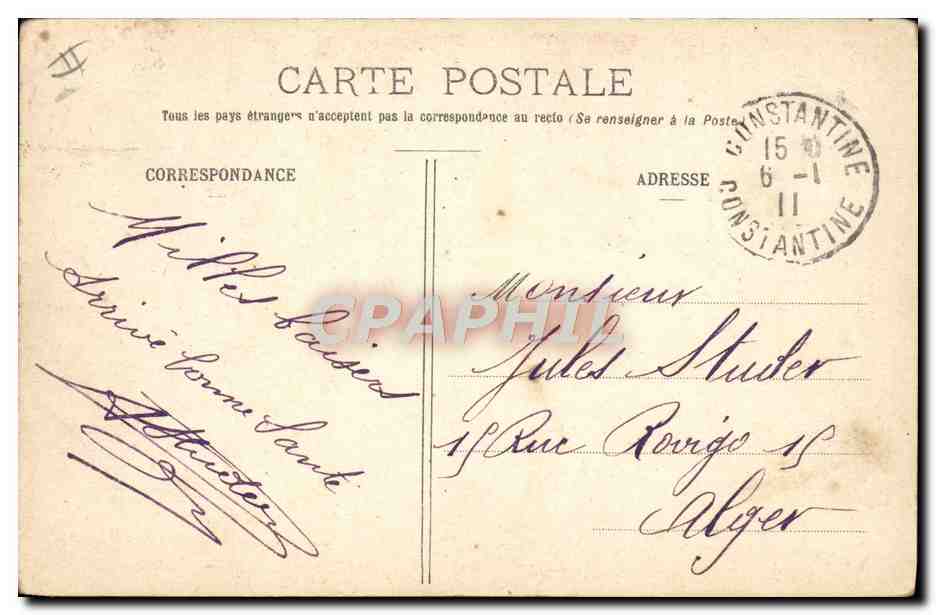 CARTE POSTALE
Tous les pays étrangers n'acceptent pas la correspondance au recto (Se renseigner à la Poste)
CORRESPONDANCE
Milles baisers
Arrivé bonne Santé
AStuder
ADRESSE
CONSTANTINE
15
6 -1
11
CONSTANTINE
Monsieur
Jules Studer
15 Rue Rovigo 15
Alger
CPAPHIL